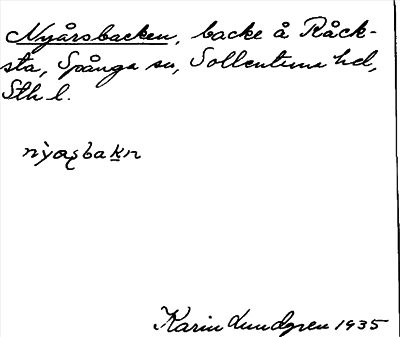 Nyårsbacken, backe å Råck-
sta, Spånga sn, Sollentuna hd,
Sth l.
Karin Lundgren 1935